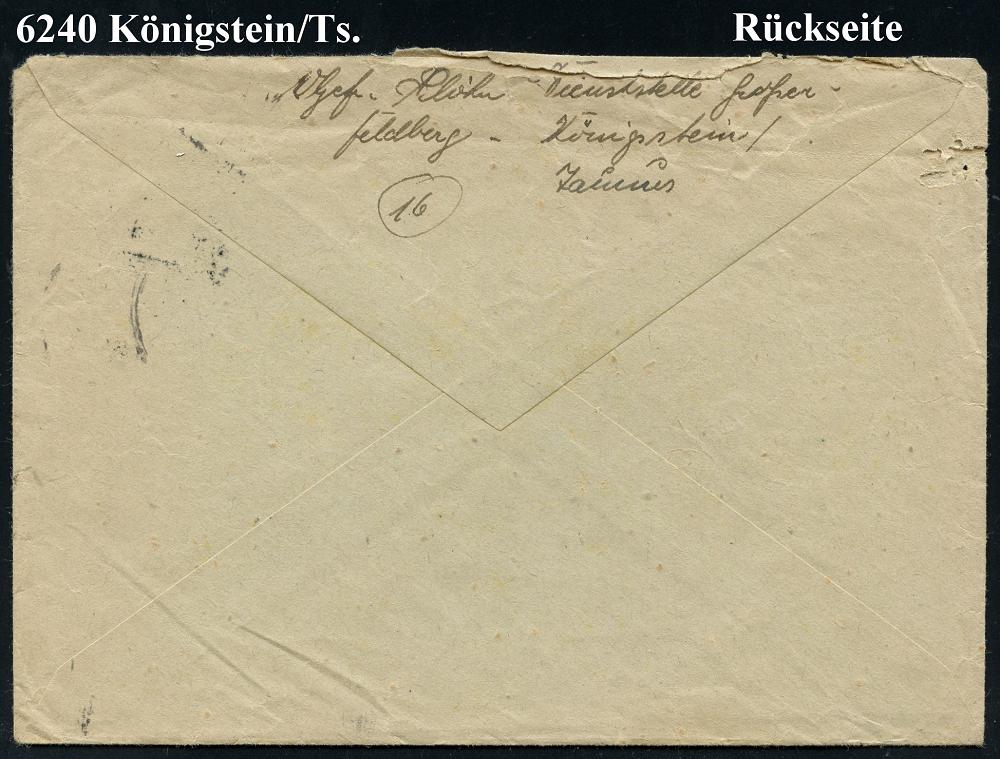 6240 Königstein/Ts.
Rückseite
Dienststelle Großer-
feldberg - Königstein/
Taunus
16